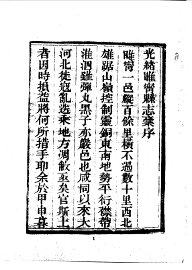 光緒睢寧縣志藁序
睢寧一邑縱百餘里橫不過數十里西北
雄踞山嶺控制靈銅東南地勢平衍襟帶
淮泗雖彈丸黑子亦嚴邑也咸同以來大
河北徙寇亂迭乘地方凋敝甚矣官斯土
者因時損益將何所措手耶余於甲申春